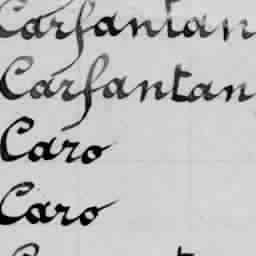 Carfantan
Carfantan
Caro
Caro